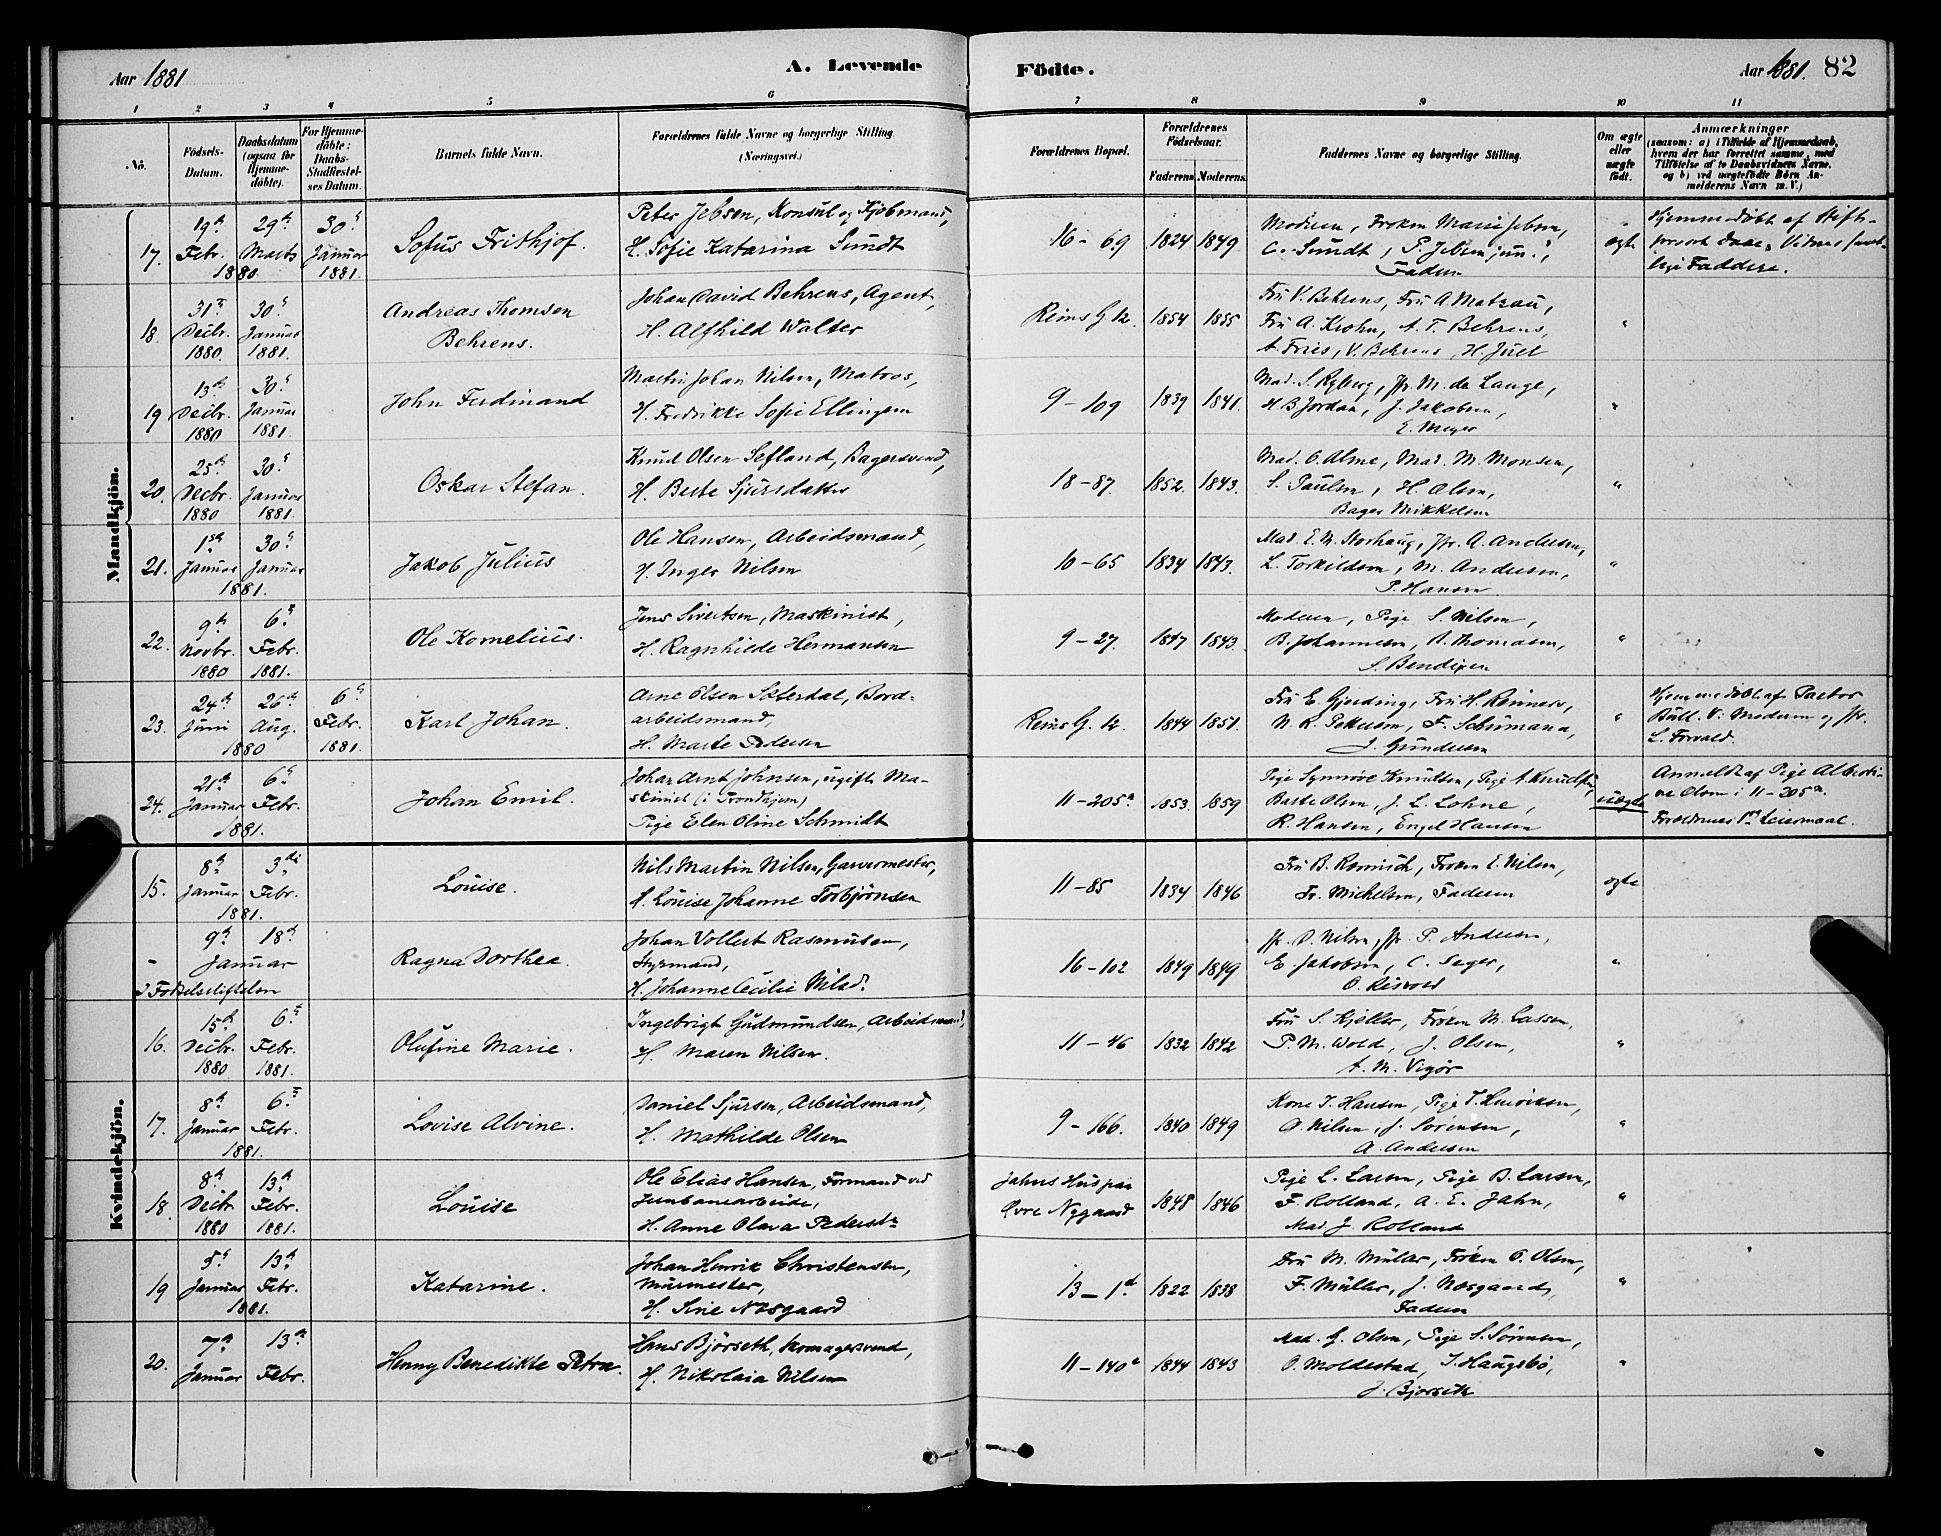 Aar 1881
A. Levende
Födte.
Aar 1881.
82
1 2 3 4 5 6 7 8 9 10 11
No.
Födsels-Datum.
Daabsdatum (ogsaa for Hjemme-döbte).
For Hjemme-döbte: Daabs-Stadfæstel-ses Datum.
Barnets fulde Navn.
Forældrenes fulde Navne og borgerlige Stilling
(Næringsvei.)
Forældrenes Bopæl.
Forældrenes Födselsaar.
Faderens Moderens.
Faddernes Navne og borgerlige Stilling.
Om ægte eller uægte födt.
Anmærkninger
(saasom: a) i Tilfælde af Hjemmedaab,
hvem der har forrettet samme, med
Tilföielse af to Daabsvidners Navne.
og b) ved uægtefödte Börn An-
melderens Navn m. V.)
Mandkjön.
17. 19de Febr. 29de Marts 1880 30te Januar 1881.
Sofus Frithjof.
Peter Jebsen, Konsul og Kjöbmand,
H. Sofie Katarina Sundt
16-69 1824 1849
Moderen, Frøken Marie Jebsen,
C. Sundt, P. Jebsen jun.,
Faderen
ægte
Hjemmedöbt af Stifts-
provst Daae, Vidner samt-
lige Faddere.
18. 31te Decbr. 1880. 30te Januar 1881.
Andreas Thomsen
Behrens.
Johan David Behrens, Agent,
H. Alfhild Walter
Reins G 12. 1854 1855
Fru V. Behrens, Fru A. Matzau,
Fru A. Krohn, A. T. Behrens,
A. Fries, V. Behrens, H. Juel
"
19 13de Decbr. 1880 30te Januar 1881.
John Ferdinand
Martin Johan Nilsen, Matros,
H. Fredrikke Sofie Ellingsen
9-109 1839 1841.
Mad. S. Ryberg, Jfr. M. de Lange,
H B Jordan, J. Jakobsen,
E. Meyer
"
20. 25de Decbr. 1880 30te Januar 1881.
Oskar Stefan.
Knud Olsen Sefland, Bagersvend,
H. Berte Sjursdatter
18-87. 1852. 1843.
Mad. O. Alme, Mad. M. Monsen,
S. Paulsen, H. Olsen,
Bager Mikkelsen
"
21. 1ste Januar 30te Januar 1881.
Jakob Julius
Ole Hansen, Arbeidsmand,
H. Inger Nilsen
10-65 1834 1843.
Mad. E. M. Storhaug, Jfr. A. Andersen,
L. Torkildsen, M. Andersen,
P. Hansen.
"
22. 9de Novbr. 1880 6te Febr. 1881.
Ole Kornelius.
Jens Sivertsen, Maskinist,
H. Ragnhilde Hermansen
9-27. 1847 1843.
Moderen, Pige S. Nilsen,
B. Johannesen, A. Thomasen,
S. Bendixen
"
23. 24de Juni 26de Aug. 1880 6te Febr. 1881.
Karl Johan.
Arne Olsen Sæterdal, Bord-
arbeidsmand,
H. Marte Pedersen
Reins G. 12. 1844 1851.
Fru E. Gjerding, Fru H. Reimers,
N. R. Pettersen, F. Schumann,
J. Gundersen
"
Hjemmedöbt af Pastor
Bull. V. Moderen og Jfr.
L. Forvald.
24. 21de Januar 6te Febr. 1881.
Johan Emil.
Johan Arnt Johnsen, ugift Ma-
skinist (i Trondhjem)
Pige Elen Oline Schmidt
11-205a 1853. 1859
Pige Synnøve Knudsen, Pige A. Knudsen,
Berte Olsen, J. L. Lohne,
R. Hansen, Engel Hansen
uægte
Anmeldt af Pige Alberti-
ne Olsen i 11-205a.
Forældrenes 1ste Leiermaal.
Kvindekjön.
15. 8de Januar 3die Febr. 1881.
Louise.
Nils Martin Nilsen, Garvermester,
H. Louise Johanne Torbjörnsen
11-85 1834 1846
Fru B. Romisch, Frøken E. Nilsen,
Fr. Michelsen, Faderen
ægte
- 9de 18de Januar
I Fødselsstiftelsen
Ragna Dorthea.
Johan Vollert Rasmussen,
Styrmand,
H. Johanne Cecilie Milad.
16-102 1849 1849
Jfr. D. Nilsen, Jfr. P. Andersen,
E. Jakobsen, C. Seger,
O. Risvold
"
16. 15de Decbr. 1880 6te Febr. 1881.
Olufine Marie.
Ingebrigt Gudmundsen, Arbeidsmand,
H. Maren Nilsen.
11-46 1832 1842
Fru S. Kjeller, Frøken M. Lassen,
P. M. Wold, J. Olsen,
A. M. Vigör
"
17. 8de Januar 6te Febr. 1881.
Lovise Alvine.
Daniel Sjursen, Arbeidsmand,
H. Mathilde Olsen
9-166. 1840 1849
Kone J. Hansen, Pige T. Henriksen,
O. Nilsen, J. Sörensen,
A. Andersen
"
18. 8de Decbr 1880 13de Febr. 1881.
Louise
Ole Elias Hansen, Formand ved
Jernbanearbeide,
H. Anne Olava Pedersdtr
Jahns Hus paa
Øvre Nygaard 1848 1846
Pige L. Larsen, Pige B. Larsen,
F. Rolland, A. E. Jahn,
Mad. J. Rolland
"
19 5te Januar 13de Febr. 1881.
Katarine.
Johan Henrik Christensen,
Murmester,
H. Sine Næsgaard
13-1d 1822 1838
Fru M. Müller, Frøken O. Olsen,
F. Müller, J. Næsgaard,
Faderen
"
20. 7de Januar 13de Febr.
Henny Benedikte Petra.
Hans Björseth, Skomagersvend,
H. Nikolaia Nilsen
11-140a 1844 1843
Mad. G. Olsen, Pige S. Sörensen,
O. Moldestad, J. Haugsbö,
J. Bjørseth
"